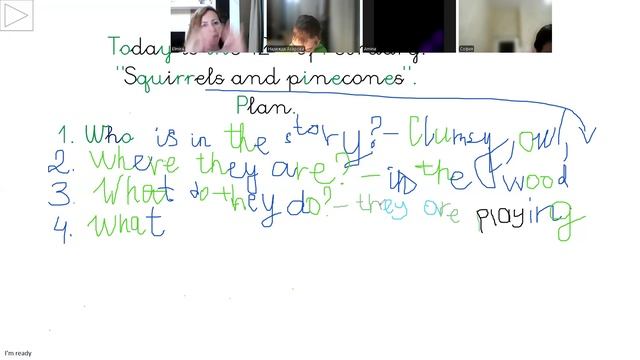 Today
"Squirrels and pinecones".
Plan.
1. Who is in the story? - Clumsy, owl,
2. Where they are? - in the wood
3. What do they do? - they are playing
4. What
I'm ready